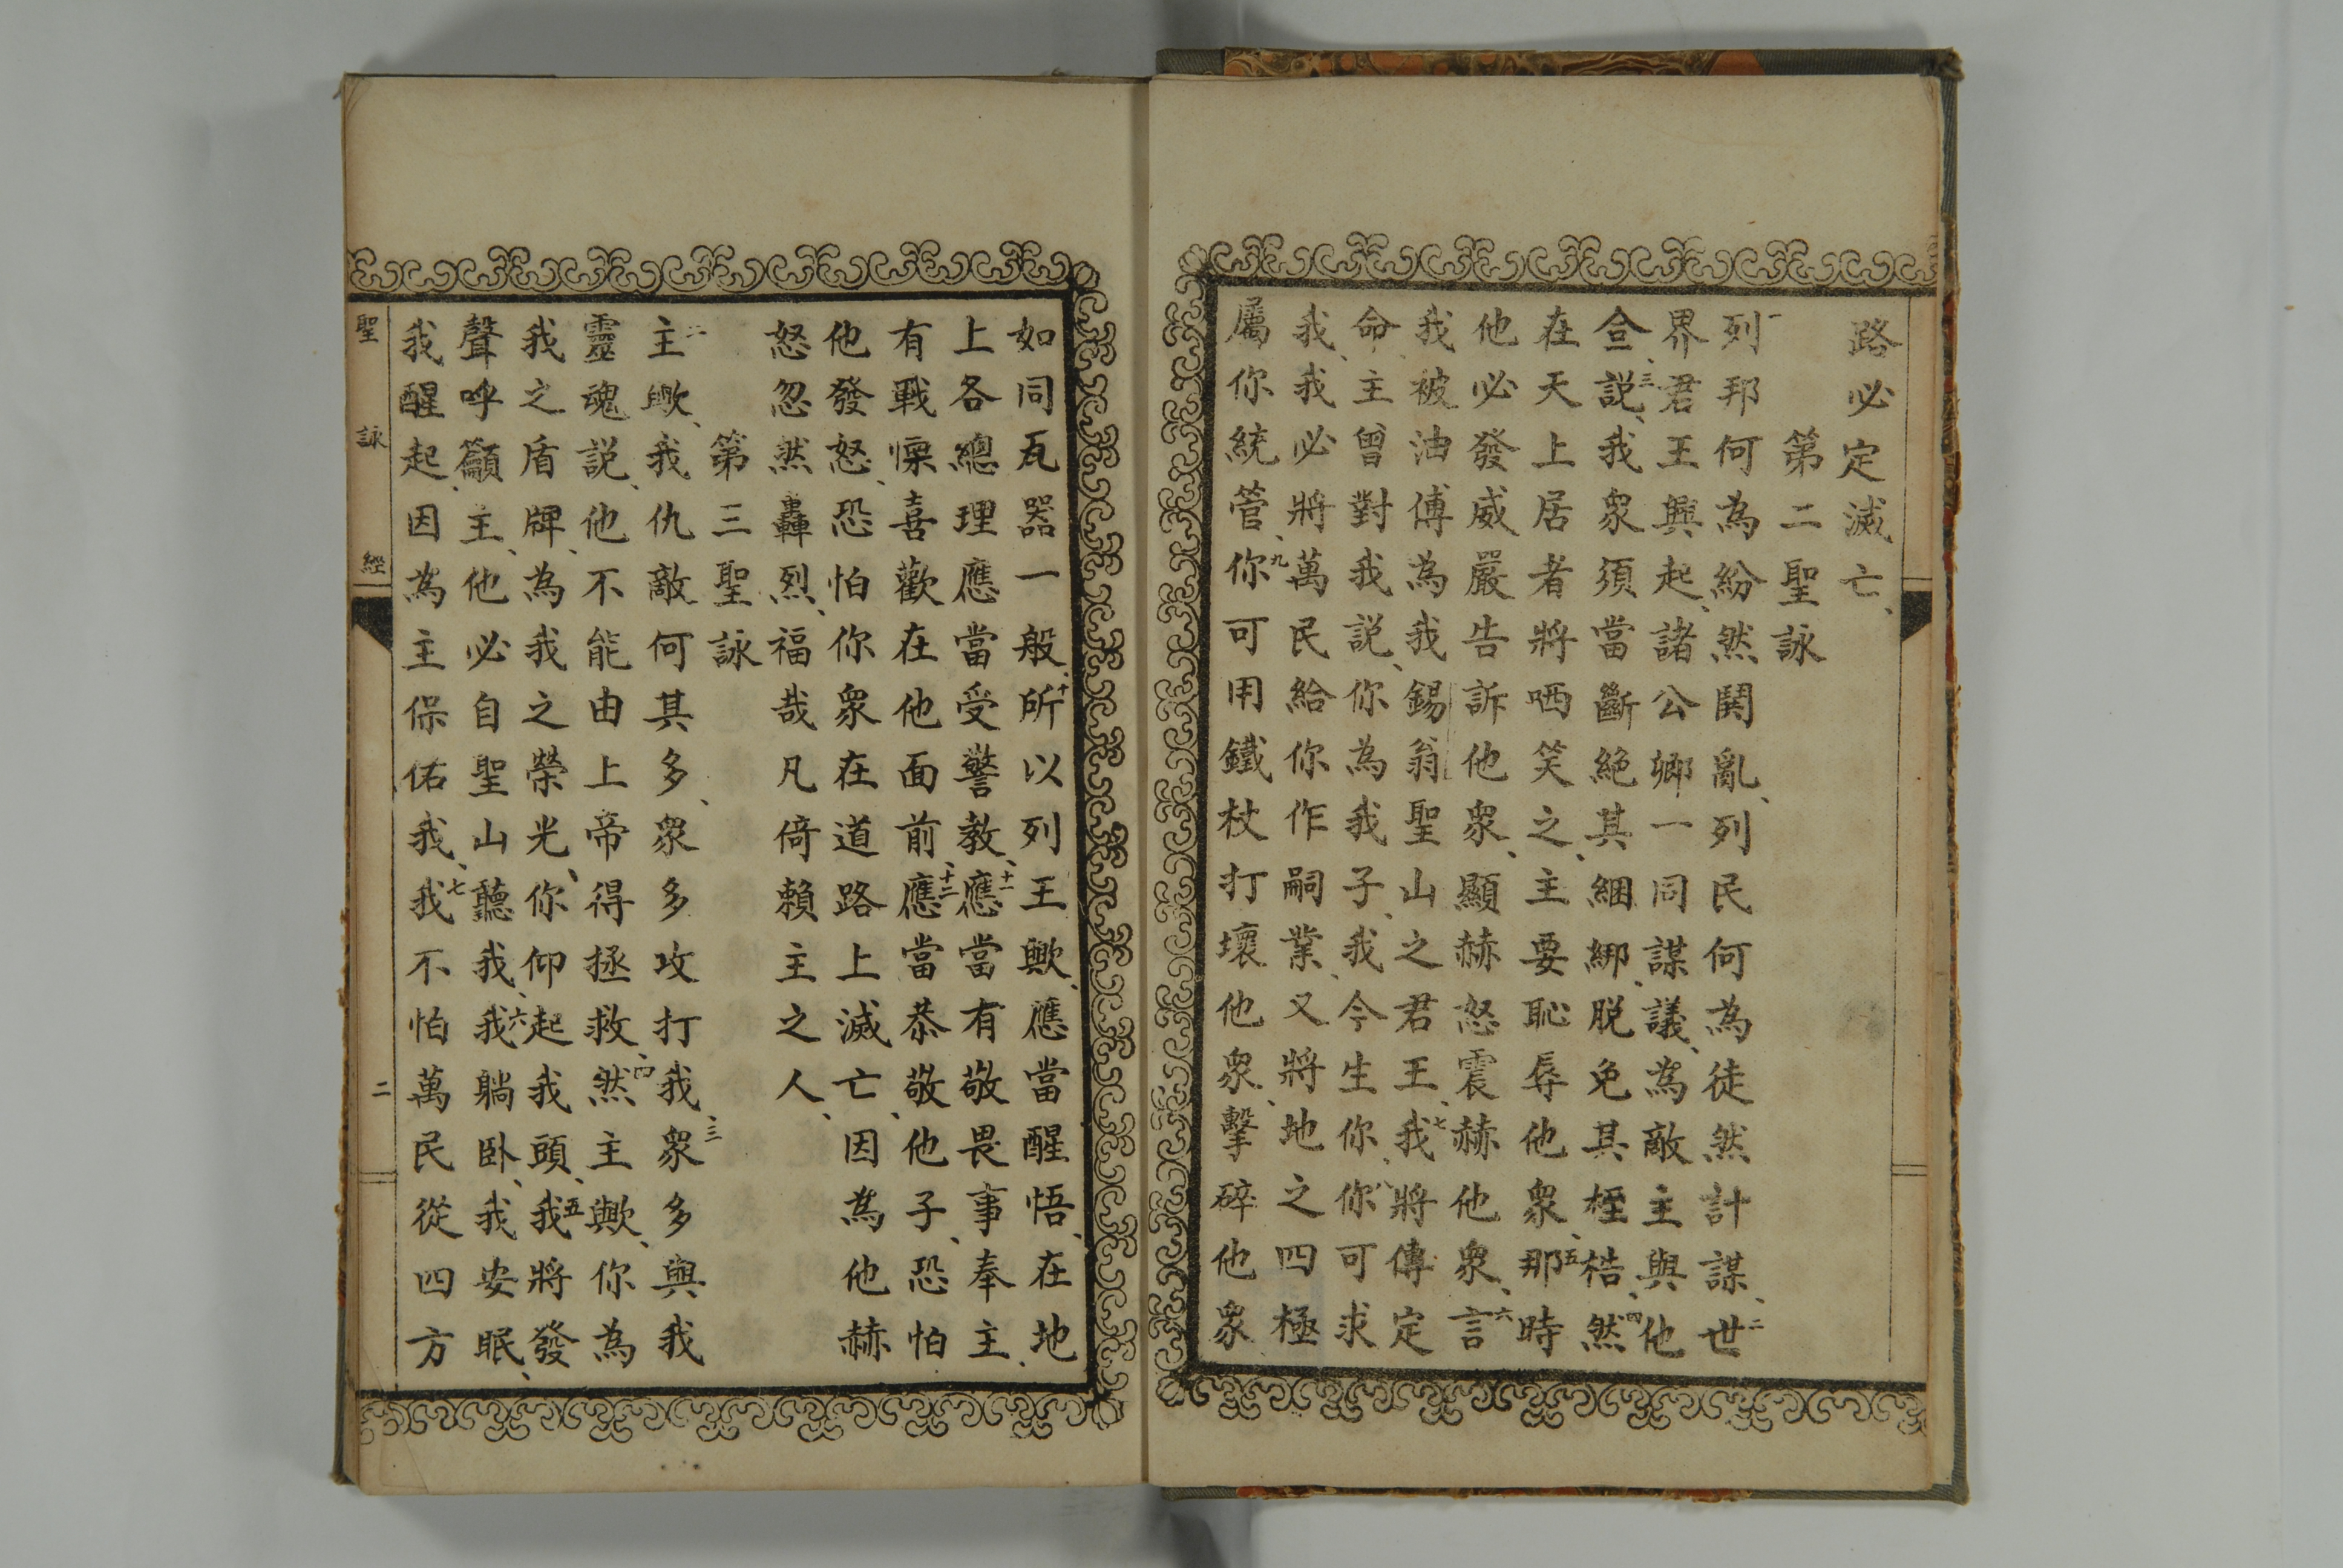 路必定滅亡、
第二聖詠
一列邦何為紛然鬨亂、列民何為徒然計謀、二世
界君王興起、諸公卿一同謀議、為敵主與他
、三説、我衆須當斷絕其綑綁、脱免其桎梏、四然
在天上居者將哂笑之、主要恥辱他衆、五那時
他必發威嚴告訴他衆、顯赫怒震赫他衆、六言
我被油傅為我錫翁聖山之君王、七我將傳定
命、主曾對我説、你為我子、我今生你、八你可求
我、我必將萬民給你作嗣業、又將地之四極
屬你統管、九你可用鐵杖打壞他衆、擊碎他衆
如同瓦器一般、十所以列王歟、應當醒悟、在地
上各總理應當受警教、十一應當有敬畏事奉主、
有戰慄喜歡在他面前、十二應當恭敬他子、恐怕
他發怒、恐怕你衆在道路上滅亡、因為他赫
怒忽然轟烈、福哉凡倚賴主之人、
第三聖詠
二主歟、我仇敵何其多、衆多攻打我、三衆多與我
靈魂説、他不能由上帝得拯救、四然主歟、你為
我之盾牌、為我之榮光、你仰起我頭、五我將發
聲呼籲主、他必自聖山聽我、六我躺卧、我安眠、
我醒起、因為主保佑我、七我不怕萬民從四方
聖詠經
二